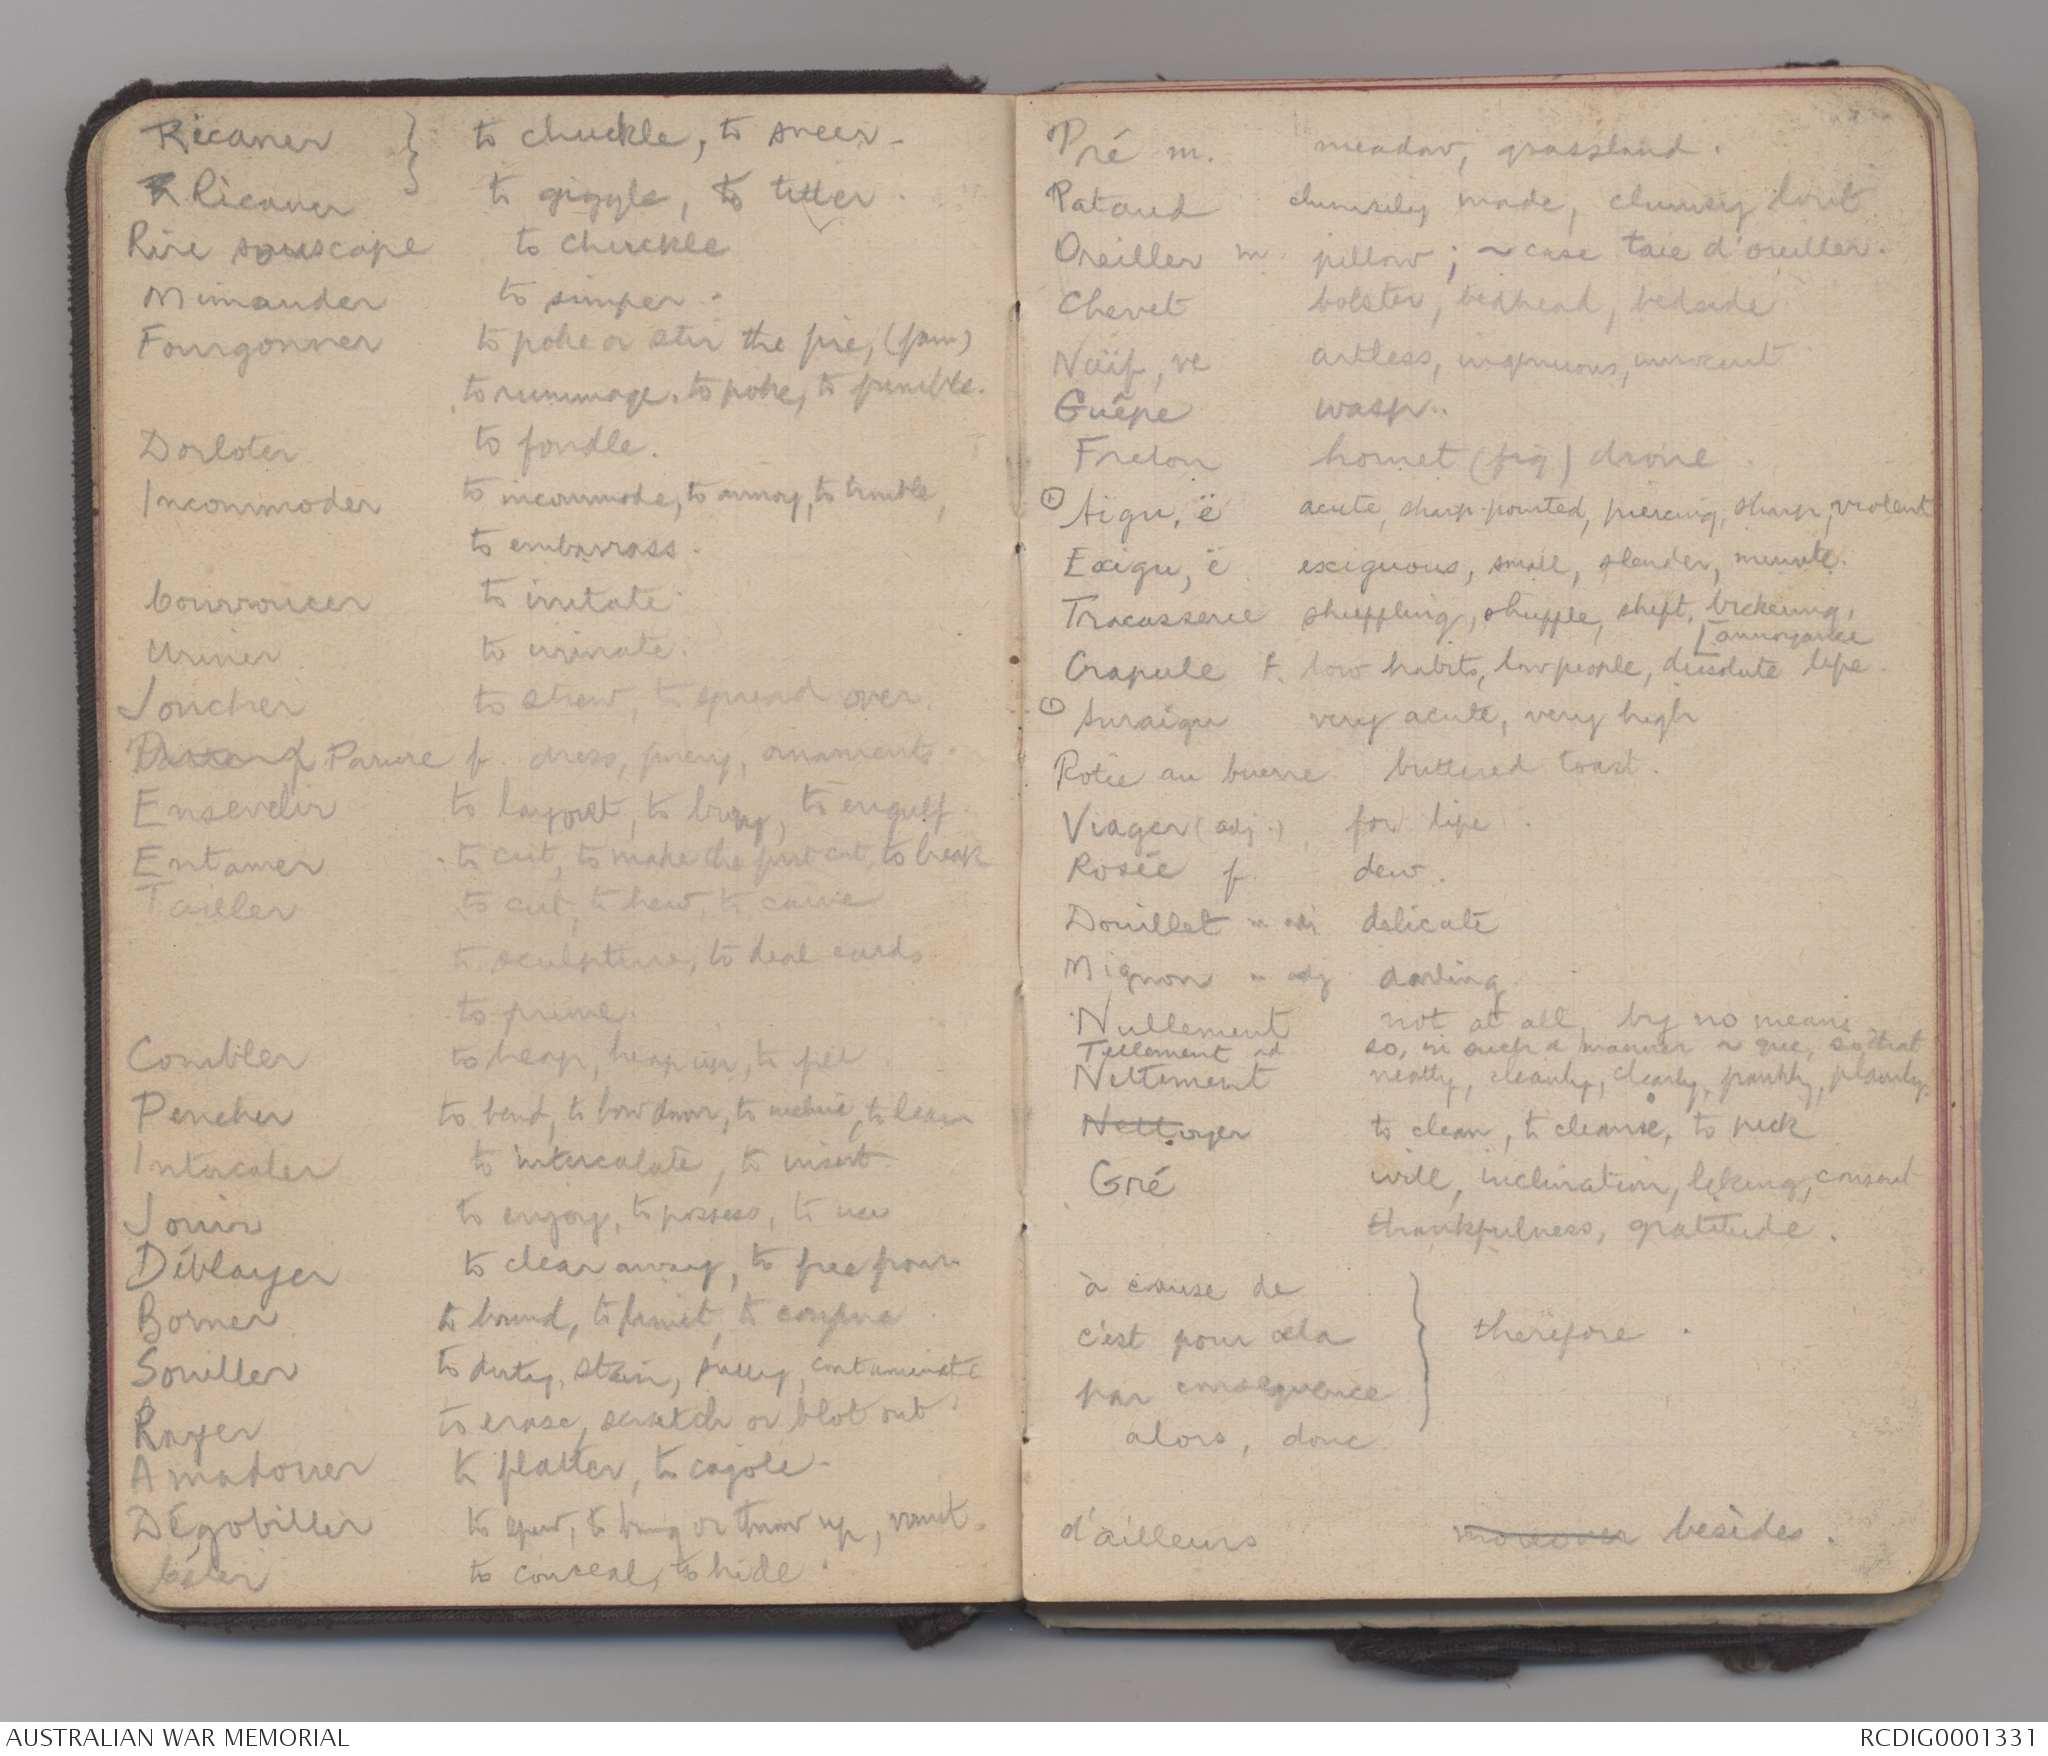 Ricaner } to chuckle, to sneer.
Ricaner to giggle, to titter.
Rire souscape to chuckle
Minauder to simper.
Fourgonner to poke or stir the fire, (fam)
to rummage, to poke, to fumble.
Dorloter to fondle.
Incommoder to incommode, to annoy, to trouble,
to embarrass.
Courroucer to irritate
Uriner to urinate.
Joncher to strew, to spread over.
Parure f. dress, finery, ornaments.
Ensevelir to layout, to bury, to engulf.
Entamer to cut, to make the first cut, to break
Tailler to cut, to hew, to carve
to sculpture, to deal cards
to prune.
Combler to heap, heap up, to fill.
Pencher to bend, to bow down, to incline, to lean
Intercaler to intercalate, to insert.
Jouir to enjoy, to possess, to use
Déblayer to clear away, to free from
Borner to bound, to limit, to confine
Souiller to dirty, stain, sully, contaminate
Rayer to erase, scratch or blot out
Amadouer to flatter, to cajole.
Dégobiller to spew, to bring or throw up, vomit.
to conceal, to hide
Pré m. meadow, grassland.
Pataud clumsily made, clumsy lout
Oreiller m. pillow; ~ case taie d'oreiller.
Chevet bolster, bedhead, bedside
Naïf, ve artless, ingenuous, innocent
Guêpe wasp..
Frelon hornet (fig) drone.
Aigu, ë acute, sharp-pointed, piercing, sharp, violent
Exigu, ë exiguous, small, slender, minute.
Tracasserie shuffling, shuffle, shift, bickering,
[annoyance
Crapule f. low habits, low people, dissolute life.
Suraigu very acute, very high
Rotie au buerre buttered toast.
Viager (adj.) for life.
Rosée f. dew.
Douillet m adj delicate
Mignon m adj darling
Nullement not at all, by no means
Tellement ad so, in such a manner ~ que, so that
Nettement neatly, cleanly, clearly, frankly, plainly.
Nettoyer to clean, to cleanse, to pick
Gré will, inclination, liking, consent
thankfulness, gratitude.
à cause de
c'est pour cela } therefore.
par consequence
alors, donc
d'ailleurs moreover besides.
AUSTRALIAN WAR MEMORIAL
RCDIG0001331